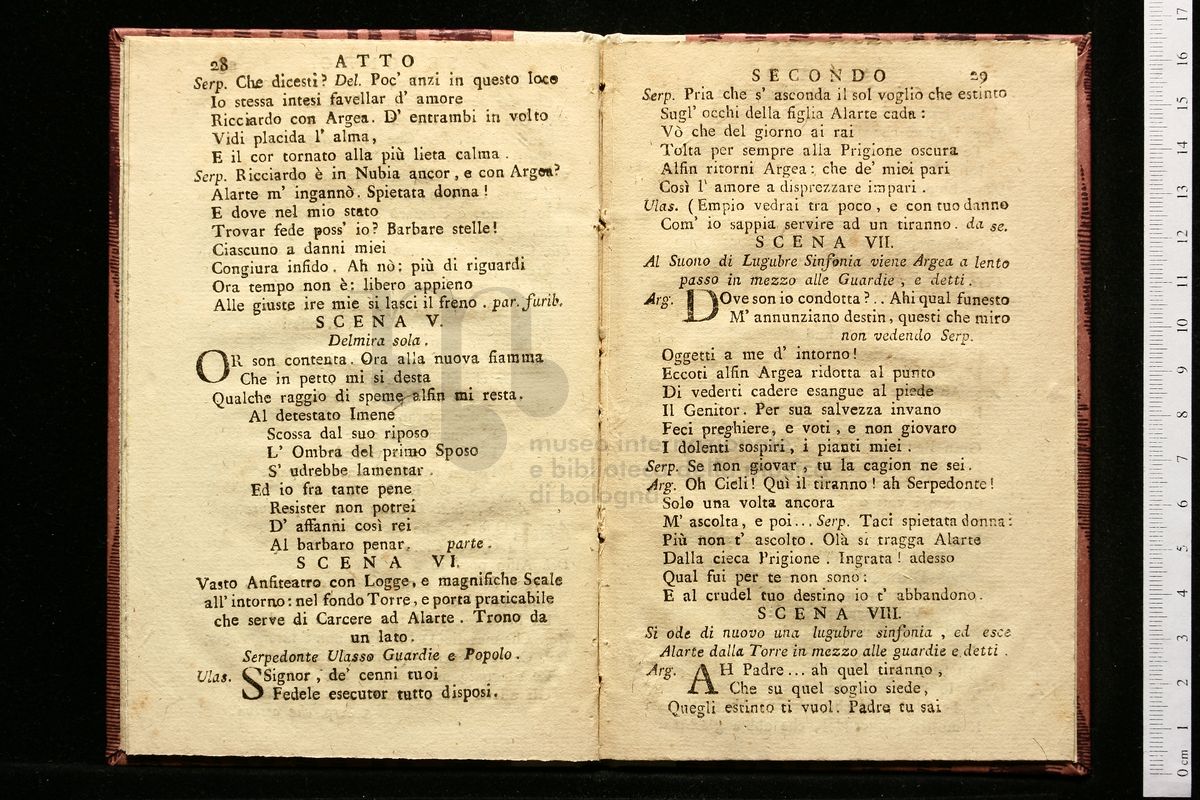 28 ATTO
Serp. Che dicesti? Del. Poc' anzi in questo loco
Io stessa intesi favellar d' amore
Ricciardo con Argea. D' entrambi in volto
Vidi placida l' alma,
E il cor tornato alla più lieta calma.
Serp. Ricciardo è in Nubia ancor, e con Argea?
Alarte m' ingannò. Spietata donna!
E dove nel mio stato
Trovar fede poss' io? Barbare stelle!
Ciascuno a danni miei
Congiura infido. Ah nò: più di riguardi
Ora tempo non è: libero appieno
Alle giuste ire mie si lasci il freno. par. furib.
SCENA V.
Delmira sola.
OR son contenta. Ora alla nuova fiamma
Che in petto mi si desta
Qualche raggio di speme alfin mi resta.
Al detestato Imene
Scossa dal suo riposo
L' Ombra del primo Sposo
S' udrebbe lamentar.
Ed io fra tante pene
Resister non potrei
D' affanni così rei
Al barbaro penar. parte.
SCENA VI.
Vasto Anfiteatro con Logge, e magnifiche Scale
all' intorno: nel fondo Torre, e porta praticabile
che serve di Carcere ad Alarte. Trono da
un lato.
Serpedonte Ulasso Guardie e Popolo.
Ulas. SSignor, de' cenni tuoi
Fedele esecutor tutto disposi.
SECONDO 29
Serp. Pria che s' asconda il sol voglio che estinto
Sugl' occhi della figlia Alarte cada:
Vò che del giorno ai rai
Tolta per sempre alla Prigione oscura
Alfin ritorni Argea: che de' miei pari
Così l' amore a disprezzare impari.
Ulas. (Empio vedrai tra poco, e con tuo danno
Com' io sappia servire ad un tiranno. da se.
SCENA VII.
Al Suono di Lugubre Sinfonia viene Argea a lento
passo in mezzo alle Guardie, e detti.
Arg. DOve son io condotta?.. Ahi qual funesto
M' annunziano destin, questi che miro
non vedendo Serp.
Oggetti a me d' intorno!
Eccoti alfin Argea ridotta al punto
Di vederti cadere esangue al piede
Il Genitor. Per sua salvezza invano
Feci preghiere, e voti, e non giovaro
I dolenti sospiri, i pianti miei.
Serp. Se non giovar, tu la cagion ne sei.
Arg. Oh Cieli! Quì il tiranno! ah Serpedonte!
Solo una volta ancora
M' ascolta, e poi... Serp. Taci spietata donna:
Più non t' ascolto. Olà si tragga Alarte
Dalla cieca Prigione. Ingrata! adesso
Qual fui per te non sono:
E al crudel tuo destino io t' abbandono.
SCENA VIII.
Si ode di nuovo una lugubre sinfonia, ed esce
Alarte dalla Torre in mezzo alle guardie e detti.
Arg. AH Padre... ah quel tiranno,
Che su quel soglio siede,
Quegli estinto ti vuol. Padre tu sai
museo internazionale
e biblioteca della musica
di bologna
0 cm 1 2 3 4 5 6 7 8 9 10 11 12 13 14 15 16 17